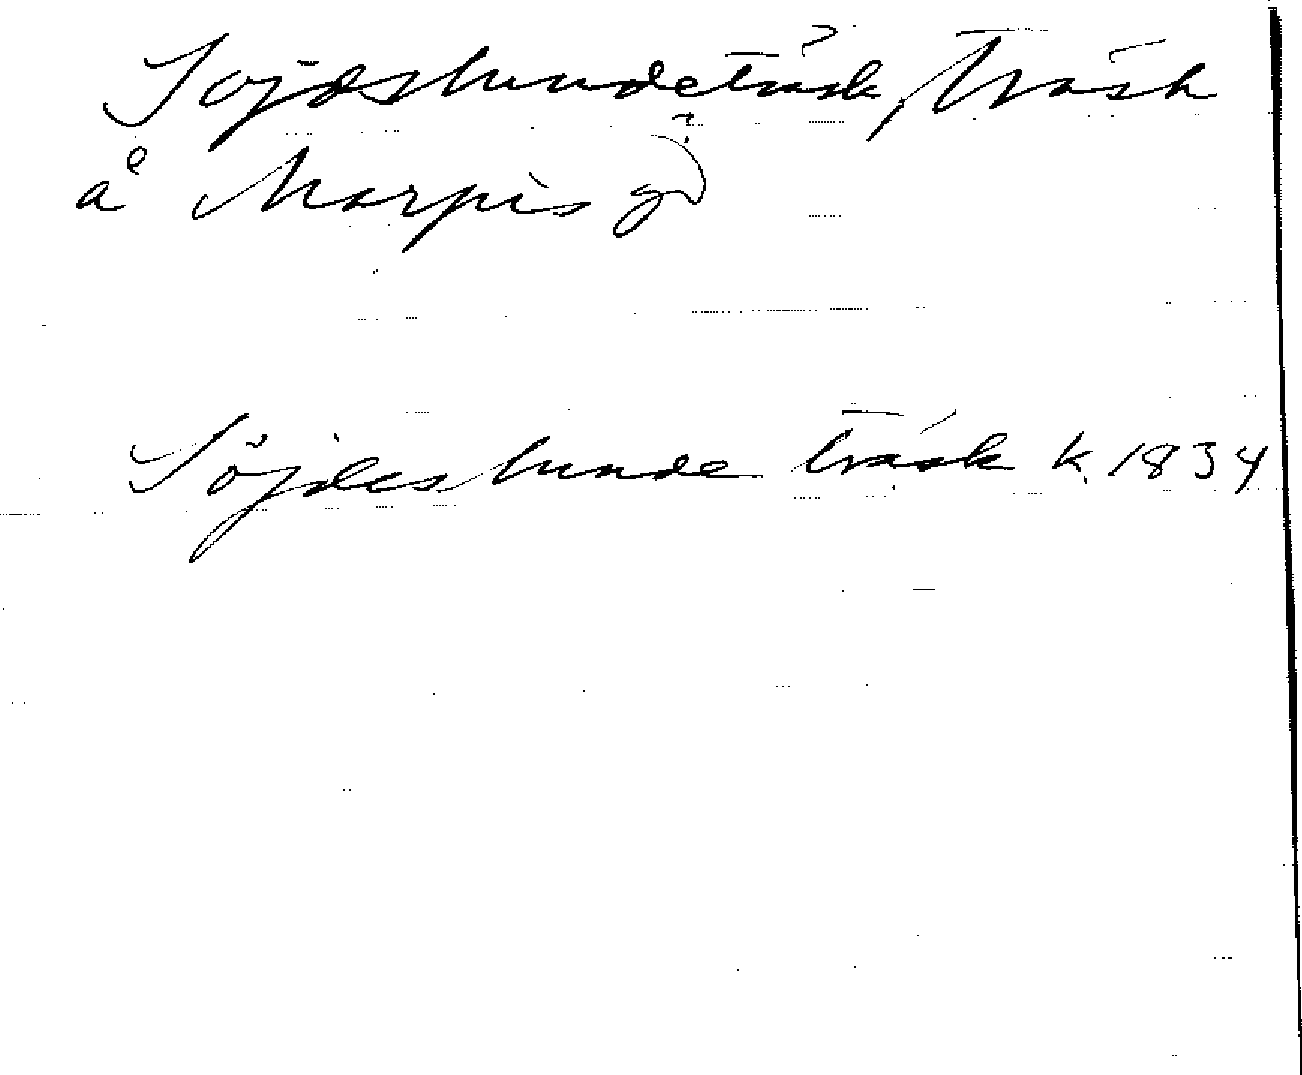 Söjdeshundeträsk, träsk
å Norpis gd
Söjdeshunde träsk k. 1834